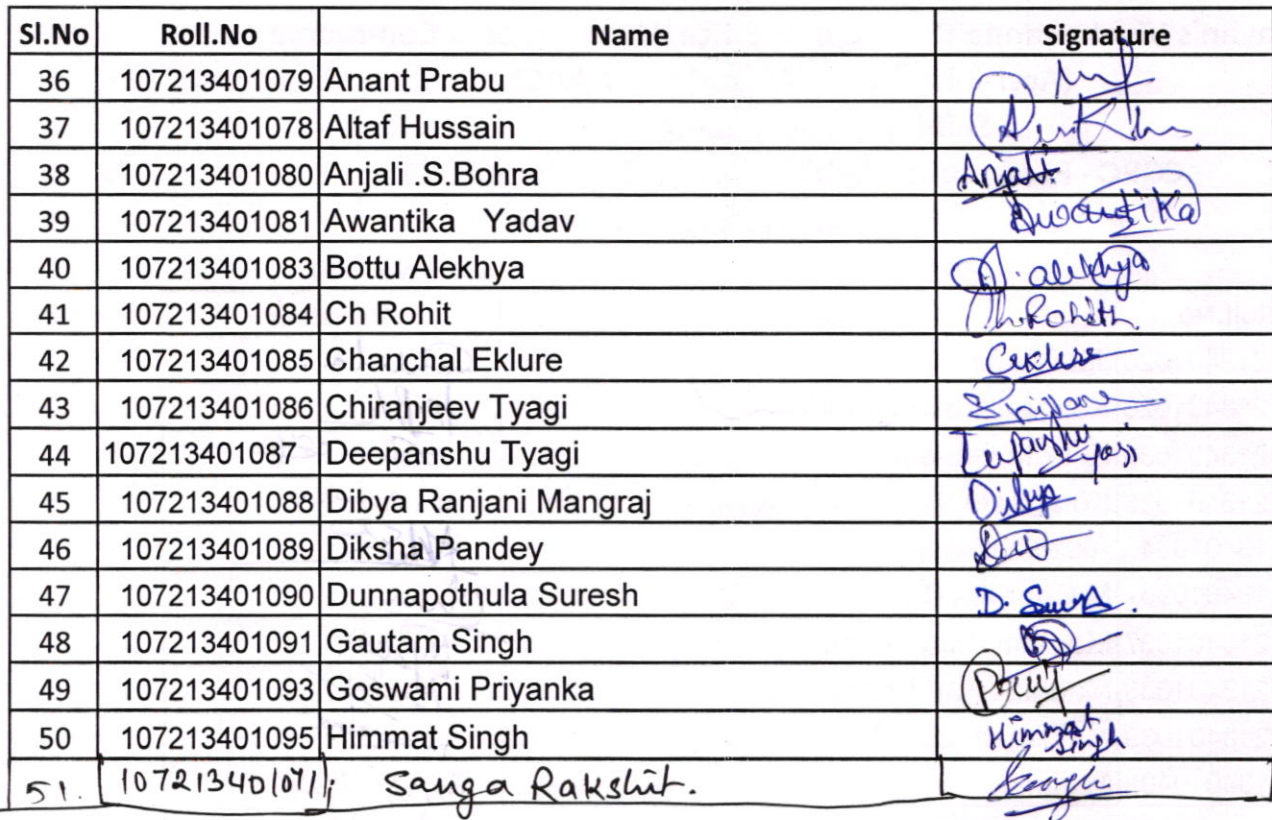 Sl.No Roll.No Name Signature
36 107213401079 Anant Prabu
37 107213401078 Altaf Hussain
38 107213401080 Anjali .S.Bohra Anjali.
39 107213401081 Awantika Yadav Awantika
40 107213401083 Bottu Alekhya alekhya
41 107213401084 Ch Rohit Ch.Rohith
42 107213401085 Chanchal Eklure
43 107213401086 Chiranjeev Tyagi
44 107213401087 Deepanshu Tyagi
45 107213401088 Dibya Ranjani Mangraj
46 107213401089 Diksha Pandey
47 107213401090 Dunnapothula Suresh D.
48 107213401091 Gautam Singh
49 107213401093 Goswami Priyanka
50 107213401095 Himmat Singh Himmat Singh
51. 107213401071; Sanga Rakshit.